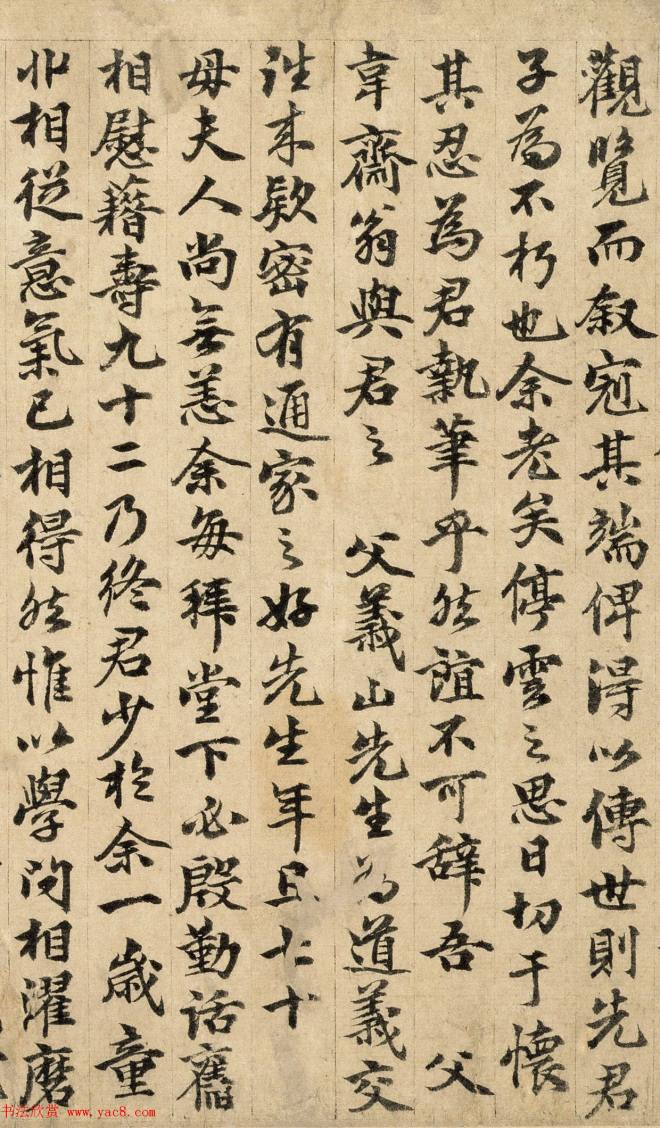 觀覽而叙冠其端俾得以傳世則先君
子為不朽也余老矣停雲之思日切于懷
其忍為君執筆乎然誼不可辞吾 父
韋齋翁與君之 父義山先生為道義交
往来欵密有通家之好先生年且七十
母夫人尚無恙余每拜堂下必殷勤話舊
相慰藉壽九十二乃終君少於余一歲童
丱相從意氣已相得然惟以學問相濯磨
书法欣赏 www.yac8.com